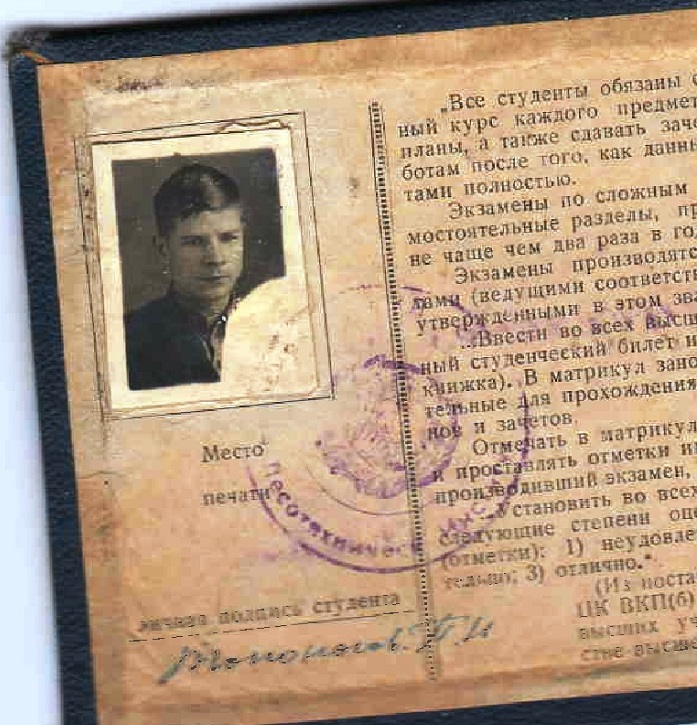 Место
печати
Лесотехническ
личная подпись студента
„Все студенты обязаны
ный курс каждого предмет
планы, а также сдавать заче
ботам после того, как данны
тами полностью.
Экзамены по сложным
мостоятельные разделы, пр
не чаще чем два раза в го
Экзамены производятс
лами (ведущими соответст
утвержденными в этом зв
...Ввести во всех высш
ный студенческий билет и
книжка). В матрикул зано
тельные для прохождения
нов и зачетов.
Отмечать в матрикул
и проставлять отметки и
производивший экзамен,
Установить во всех
следующие степени оце
(отметки): 1) неудовле
тельно; 3) отлично.“
(Из поста
ЦК ВКП(б)
высших уч
стве высше